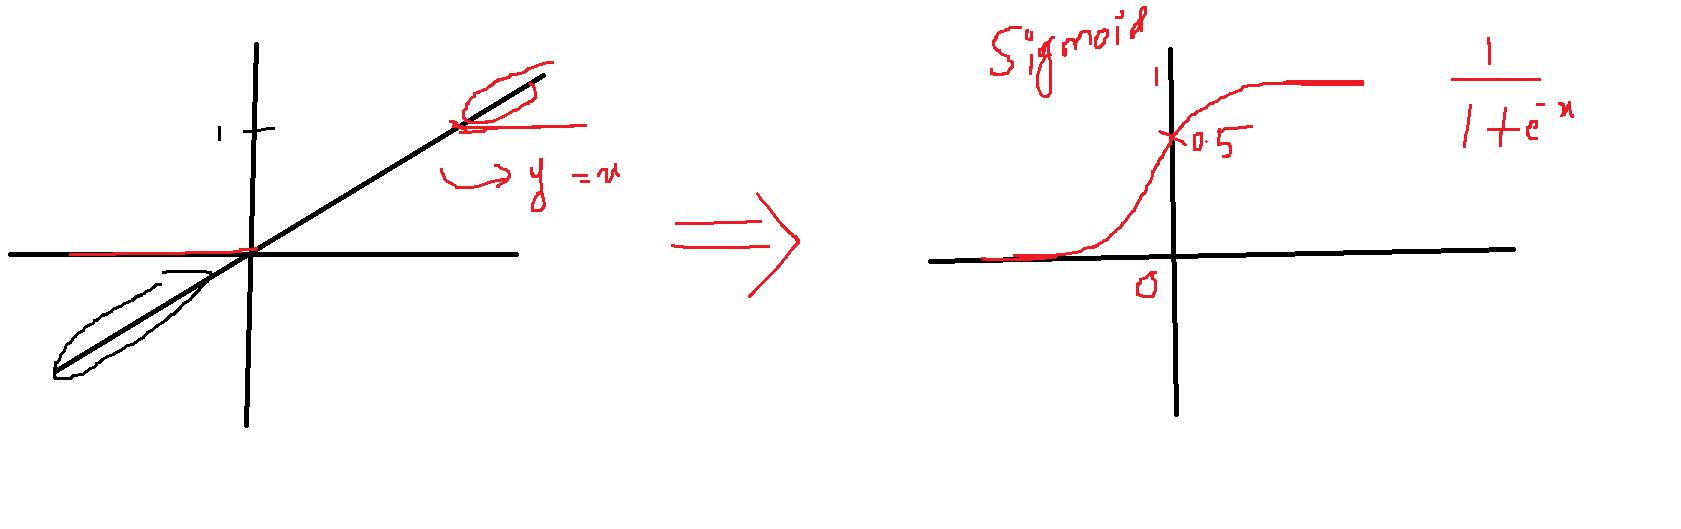 1
y = x
Sigmoid
1
0.5
0
1
1+e^-x